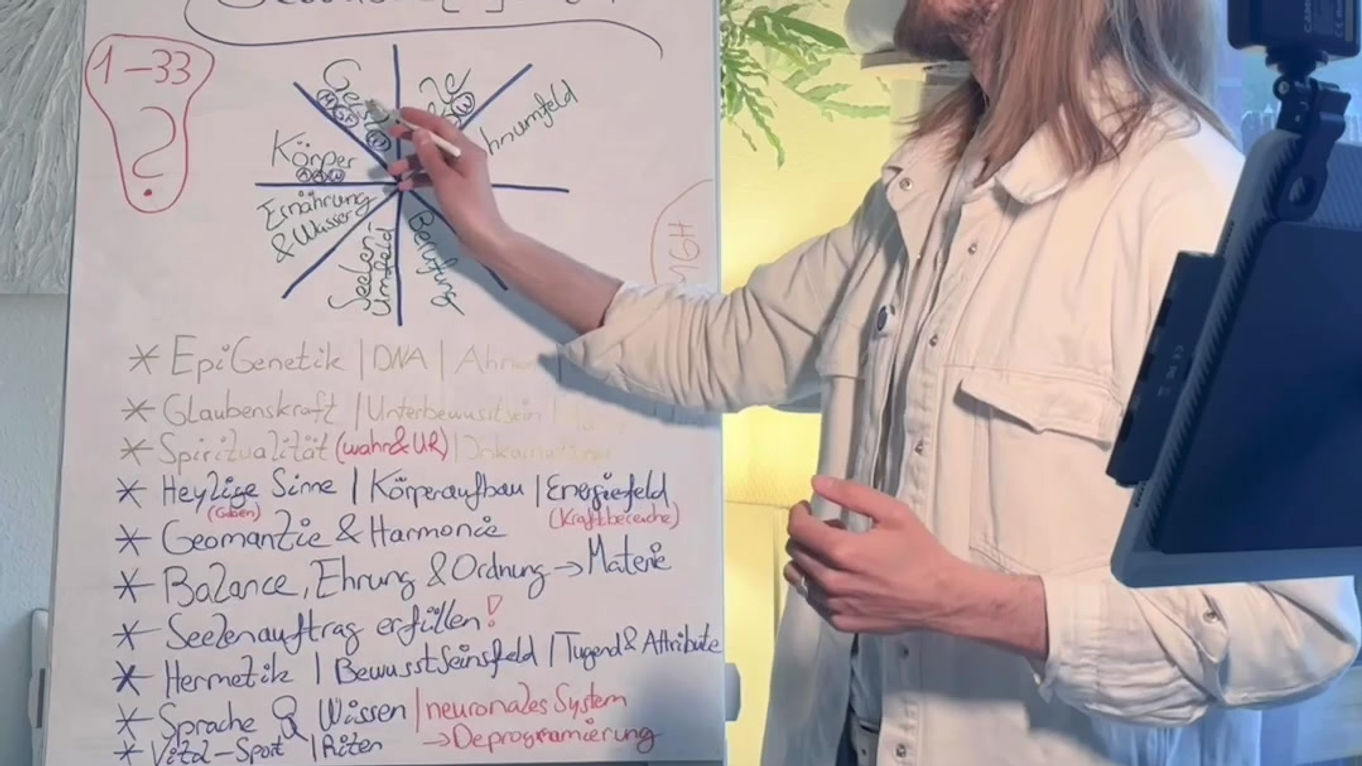 1-33
?
Körper
Wohnumfeld
Ernährung
& Wasser
Seelen-
umfeld
Berufung
MGH
* EpiGenetik | DNA |
* Glaubenskraft | Unterbewusstsein |
* Spiritualität (wahr&UR) |
* Heylige Sinne | Körperaufbau | Energiefeld
(Gaben) (Kraftbereiche)
* Geomantie & Harmonie
* Balance, Ehrung & Ordnung → Materie
* Seelenauftrag erfüllen!
* Hermetik | Bewusstseinsfeld | Tugend & Attribute
* Sprache & Wissen | neuronales System
→ Deprogramierung
* Vital-Sport | Riten